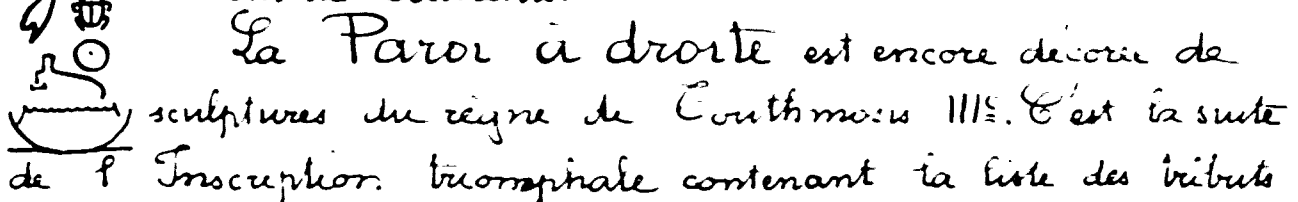 La Paroi à droite est encore décorée de
sculptures du règne de Touthmosis III<sup>e</sup>. C'est la suite
de l'Inscription triomphale contenant la liste des tributs